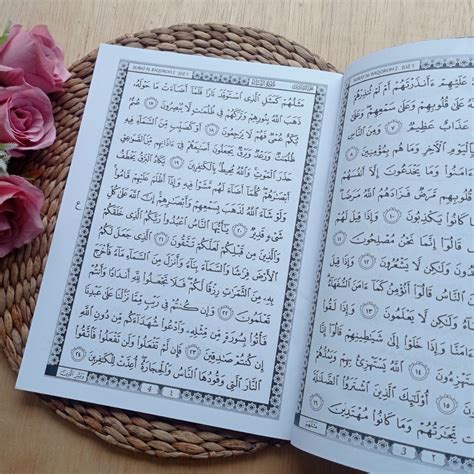 SURAT AL BAQOROH 2 - JUZ 1
عَلَيْهِمْ ءَأَنذَرْتَهُمْ أَمْ لَمْ تُنذِرْهُمْ
عَلَىٰ قُلُوبِهِمْ وَعَلَىٰ سَمْعِهِمْ
عَذَابٌ عَظِيمٌ ٧ وَمِنَ النَّاسِ
الْيَوْمِ الْآخِرِ وَمَا هُم بِمُؤْمِنِينَ ٨
قُلُوبِهِم مَّرَضٌ فَزَادَهُمُ اللَّهُ مَرَضًا
كَانُوا يَكْذِبُونَ ١٠
قَالُوا إِنَّمَا نَحْنُ مُصْلِحُونَ ١١
وَلَٰكِن لَّا يَشْعُرُونَ ١٢ وَإِذَا
النَّاسُ قَالُوا أَنُؤْمِنُ كَمَا ءَامَنَ
وَلَٰكِن لَّا يَعْلَمُونَ ١٣ وَإِذَا لَقُوا
وَإِذَا خَلَوْا إِلَىٰ شَيَاطِينِهِمْ
اللَّهُ يَسْتَهْزِئُ بِهِمْ
١٥ أُولَٰئِكَ الَّذِينَ اشْتَرَوُا الضَّلَالَةَ
تِّجَارَتُهُمْ وَمَا كَانُوا مُهْتَدِينَ ١٦
3
مَثَلُهُمْ
SURAT AL BAQOROH 2 - JUZ 1
مَثَلُهُمْ كَمَثَلِ الَّذِي اسْتَوْقَدَ نَارًا فَلَمَّا أَضَاءَتْ مَا حَوْلَهُ
ذَهَبَ اللَّهُ بِنُورِهِمْ وَتَرَكَهُمْ فِي ظُلُمَاتٍ لَّا يُبْصِرُونَ ١٧ صُمٌّ
بُكْمٌ عُمْيٌ فَهُمْ لَا يَرْجِعُونَ ١٨ أَوْ كَصَيِّبٍ مِّنَ السَّمَاءِ فِيهِ
ظُلُمَاتٌ وَرَعْدٌ وَبَرْقٌ يَجْعَلُونَ أَصَابِعَهُمْ فِي ءَاذَانِهِم مِّنَ الصَّوَاعِقِ
حَذَرَ الْمَوْتِ وَاللَّهُ مُحِيطٌ بِالْكَافِرِينَ ١٩ يَكَادُ الْبَرْقُ يَخْطَفُ
أَبْصَارَهُمْ كُلَّمَا أَضَاءَ لَهُم مَّشَوْا فِيهِ وَإِذَا أَظْلَمَ عَلَيْهِمْ قَامُوا
وَلَوْ شَاءَ اللَّهُ لَذَهَبَ بِسَمْعِهِمْ وَأَبْصَارِهِمْ إِنَّ اللَّهَ عَلَىٰ كُلِّ
شَيْءٍ قَدِيرٌ ٢٠ يَا أَيُّهَا النَّاسُ اعْبُدُوا رَبَّكُمُ الَّذِي خَلَقَكُمْ
وَالَّذِينَ مِن قَبْلِكُمْ لَعَلَّكُمْ تَتَّقُونَ ٢١ الَّذِي جَعَلَ لَكُمُ
الْأَرْضَ فِرَاشًا وَالسَّمَاءَ بِنَاءً وَأَنزَلَ مِنَ السَّمَاءِ مَاءً فَأَخْرَجَ
بِهِ مِنَ الثَّمَرَاتِ رِزْقًا لَّكُمْ فَلَا تَجْعَلُوا لِلَّهِ أَندَادًا وَأَنتُمْ
تَعْلَمُونَ ٢٢ وَإِن كُنتُمْ فِي رَيْبٍ مِّمَّا نَزَّلْنَا عَلَىٰ عَبْدِنَا
فَأْتُوا بِسُورَةٍ مِّن مِّثْلِهِ وَادْعُوا شُهَدَاءَكُم مِّن دُونِ اللَّهِ
إِن كُنتُمْ صَادِقِينَ ٢٣ فَإِن لَّمْ تَفْعَلُوا وَلَن تَفْعَلُوا فَاتَّقُوا
النَّارَ الَّتِي وَقُودُهَا النَّاسُ وَالْحِجَارَةُ أُعِدَّتْ لِلْكَافِرِينَ ٢٤
ع
4 ٤
وَبَشِّرِ الَّذِينَ